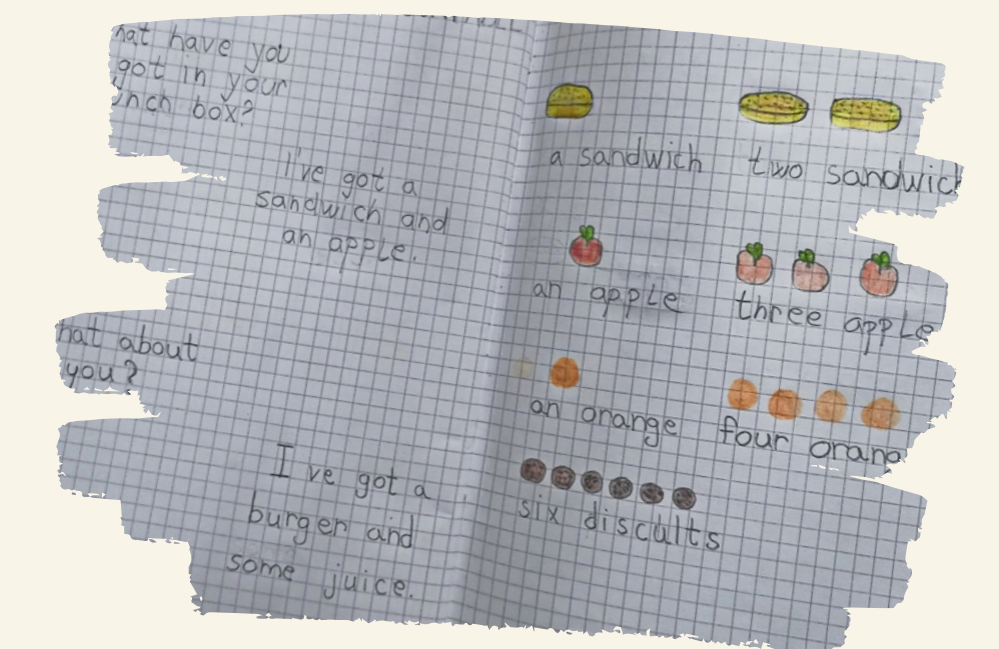 have you
got in your
box?
I've got a
sandwich and
an apple.
about
you?
I've got a
burger and
some juice.
a sandwich two
an apple three apple
an orange four
six discults